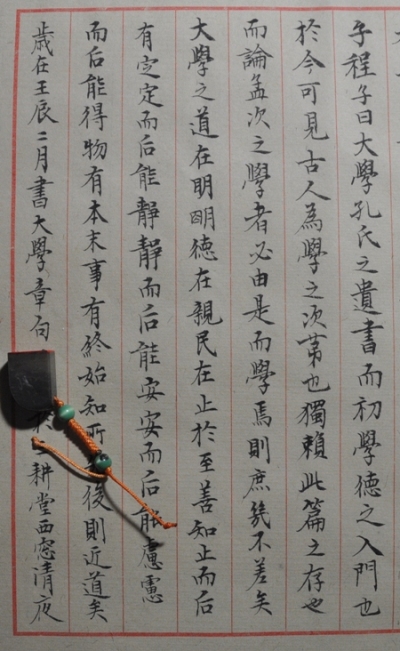 子程子曰大學孔氏之遺書而初學德之入門也
於今可見古人為學之次苐也獨賴此篇之存也
而論孟次之學者必由是而學焉則庶幾不差矣
大學之道在明明德在親民在止於至善知止而后
有定定而后能靜靜而后能安安而后能慮慮
而后能得物有本末事有終始知所後則近道矣
歲在壬辰二月書大學章句耕堂西窓清夜